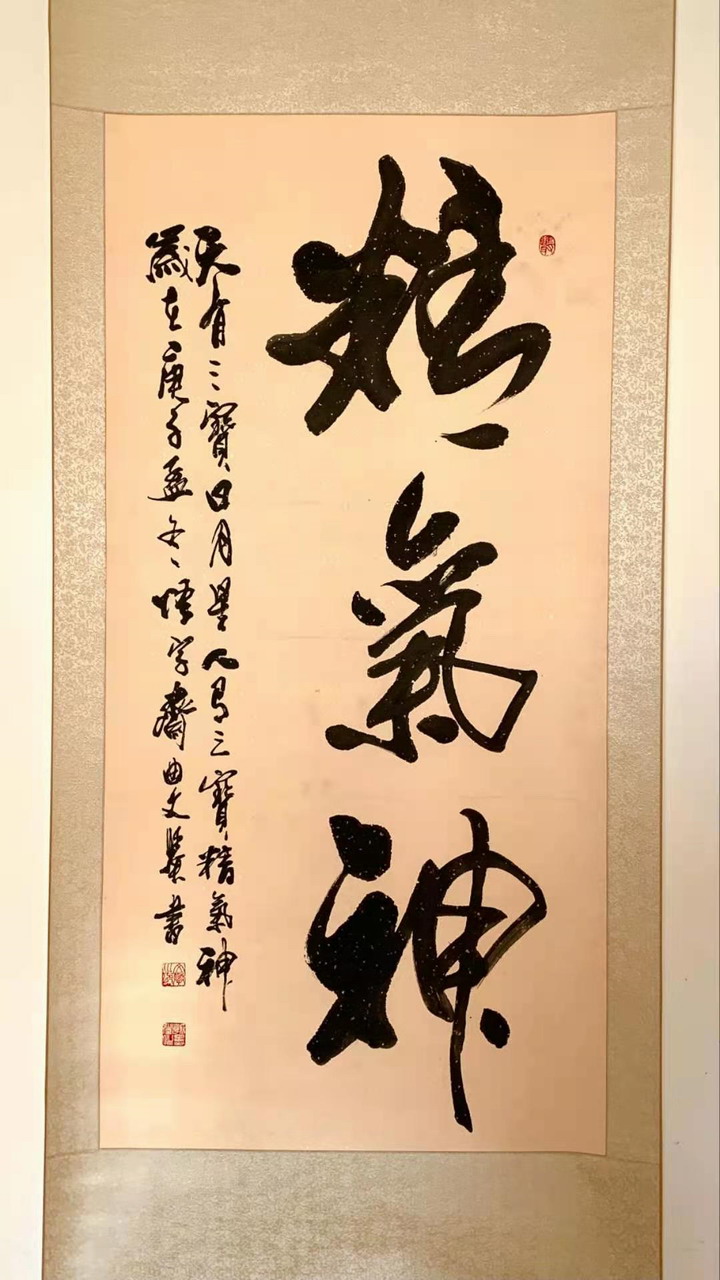 精氣神
天有三寶日月星人有三寶精氣神
歲在庚子孟冬悟字齋曲文㷼書